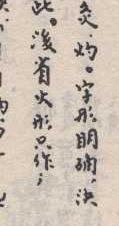 炙.灼。字形明确,决
此。后省火形只作;